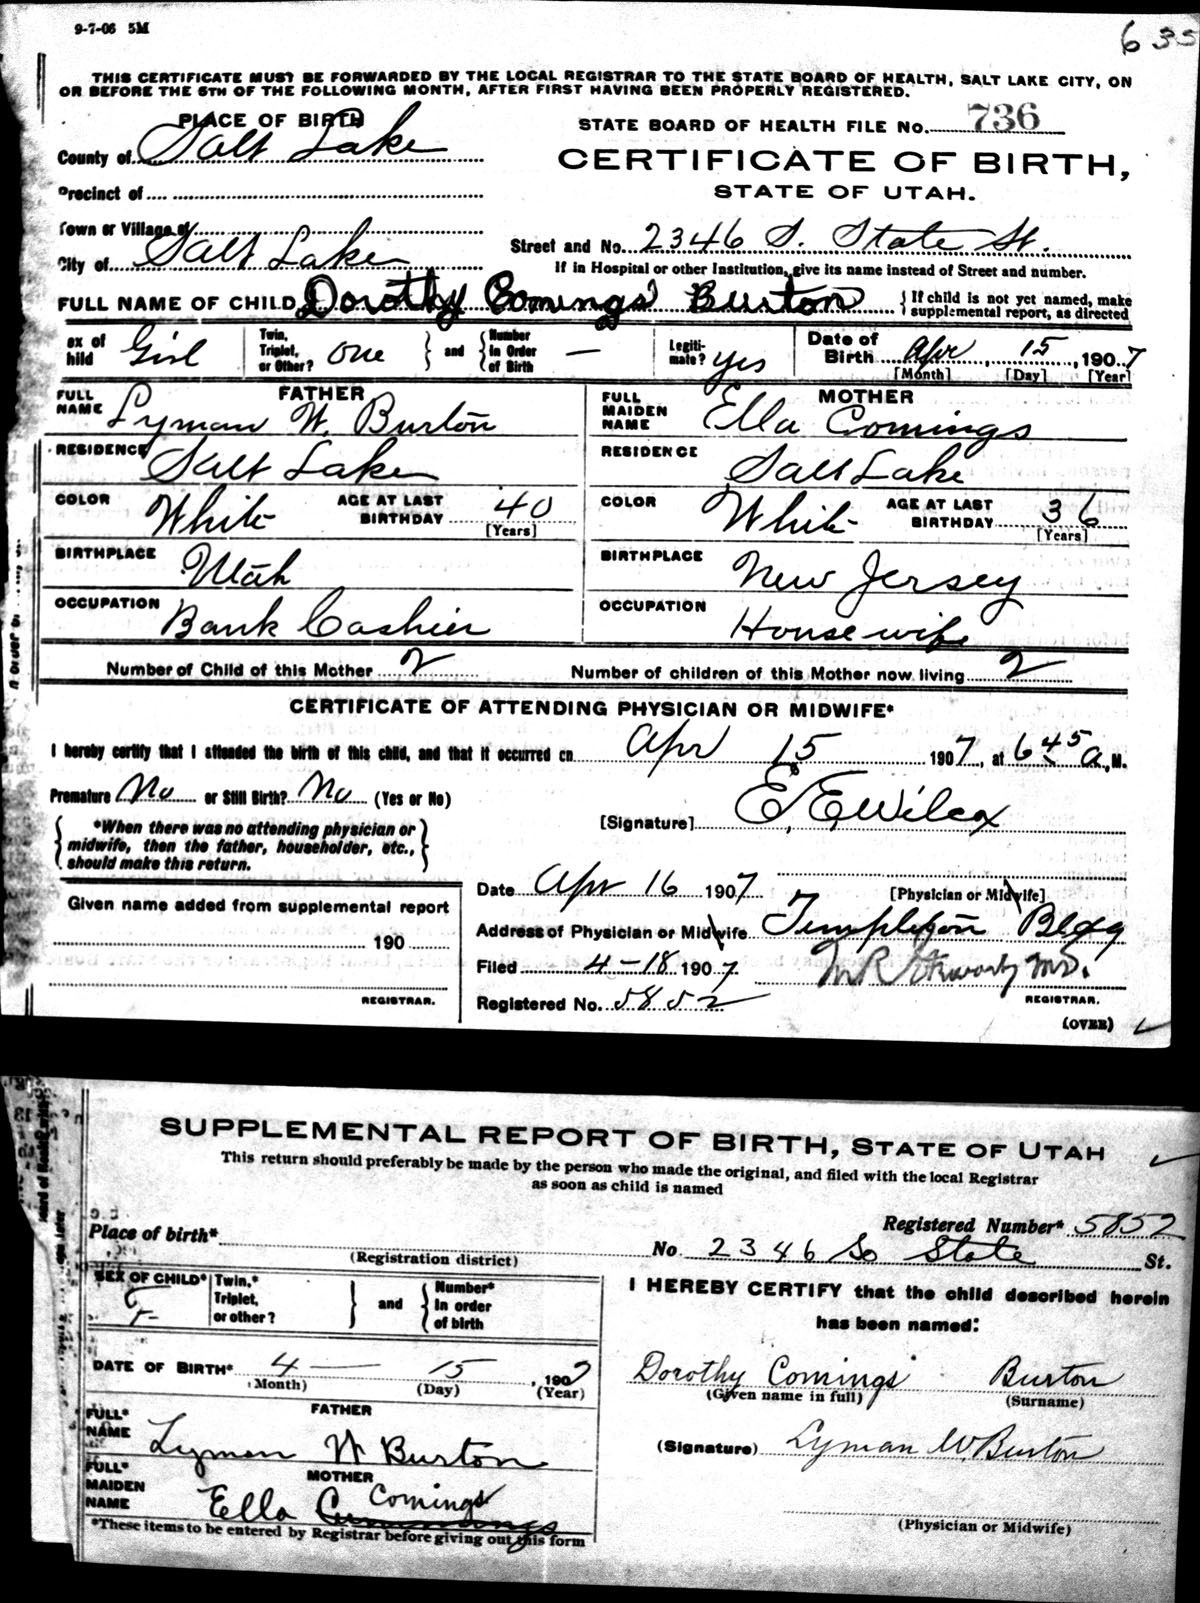 9-7-06 5M
635
THIS CERTIFICATE MUST BE FORWARDED BY THE LOCAL REGISTRAR TO THE STATE BOARD OF HEALTH, SALT LAKE CITY, ON
OR BEFORE THE 5TH OF THE FOLLOWING MONTH, AFTER FIRST HAVING BEEN PROPERLY REGISTERED.
PLACE OF BIRTH
STATE BOARD OF HEALTH FILE No. 736
County of Salt Lake
CERTIFICATE OF BIRTH,
STATE OF UTAH.
Precinct of
Town or Village of
Street and No. 2346 S. State St.
City of Salt Lake
If in Hospital or other Institution, give its name instead of Street and number.
FULL NAME OF CHILD Dorothy Comings Burton { If child is not yet named, make supplemental report, as directed
ex of hild Girl Twin, Triplet, or Other? One } and { Number in Order of Birth — Legiti-mate? yes Date of Birth Apr 15, 1907
[Month] [Day] [Year]
FATHER
FULL NAME Lyman W. Burton
MOTHER
FULL MAIDEN NAME Ella Comings
RESIDENCE Salt Lake
RESIDENCE Salt Lake
COLOR White AGE AT LAST BIRTHDAY 40 [Years]
COLOR White AGE AT LAST BIRTHDAY 36 [Years]
BIRTHPLACE Utah
BIRTHPLACE New Jersey
OCCUPATION Bank Cashier
OCCUPATION Housewife
Number of Child of this Mother 2 Number of children of this Mother now living 2
CERTIFICATE OF ATTENDING PHYSICIAN OR MIDWIFE*
I hereby certify that I attended the birth of this child, and that it occurred on Apr 15 1907, at 6 45 a. M.
Premature No or Still Birth? No (Yes or No)
[Signature] E. E. Wilcox
{ *When there was no attending physician or
midwife, then the father, householder, etc.,
should make this return. }
Date Apr 16 1907
[Physician or Midwife]
Given name added from supplemental report
Address of Physician or Midwife Templeton Bldg
190
Filed 4-18 1907
M.D.
REGISTRAR.
Registered No. 5852
REGISTRAR.
(OVER)
SUPPLEMENTAL REPORT OF BIRTH, STATE OF UTAH
This return should preferably be made by the person who made the original, and filed with the local Registrar
as soon as child is named
Registered Number* 5852
Place of birth*
No. 2346 So State St.
(Registration district)
SEX OF CHILD* F- Twin,* Triplet, or other? } and { Number* in order of birth
I HEREBY CERTIFY that the child described herein
has been named:
DATE OF BIRTH* 4 — 15, 1907
(Month) (Day) (Year)
Dorothy Comings Burton
(Given name in full) (Surname)
FATHER
FULL* NAME Lyman W Burton
(Signature) Lyman W. Burton
MOTHER
FULL* MAIDEN NAME Ella Cummings Comings
(Physician or Midwife)
*These items to be entered by Registrar before giving out this form